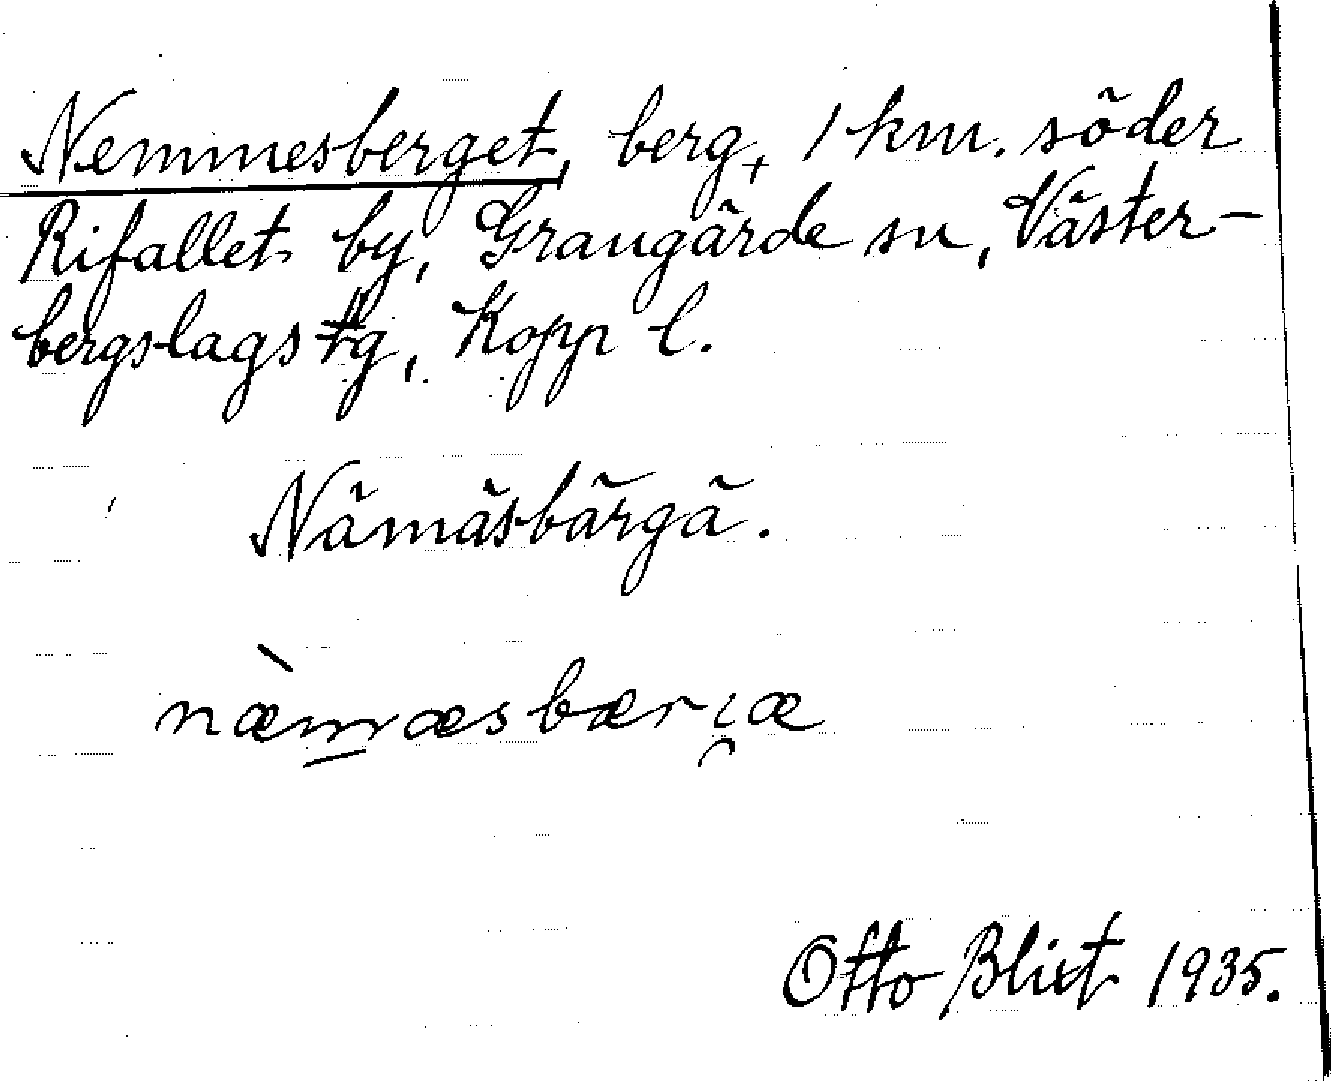 Nemmesberget, berg, 1 km. söder
Rifallet by, Grangärde sn, Väster-
bergslags fg, Kopp l.
Nämäsbärgä.
næ̀m̲æsbærᶖæ
Otto Blixt 1935.